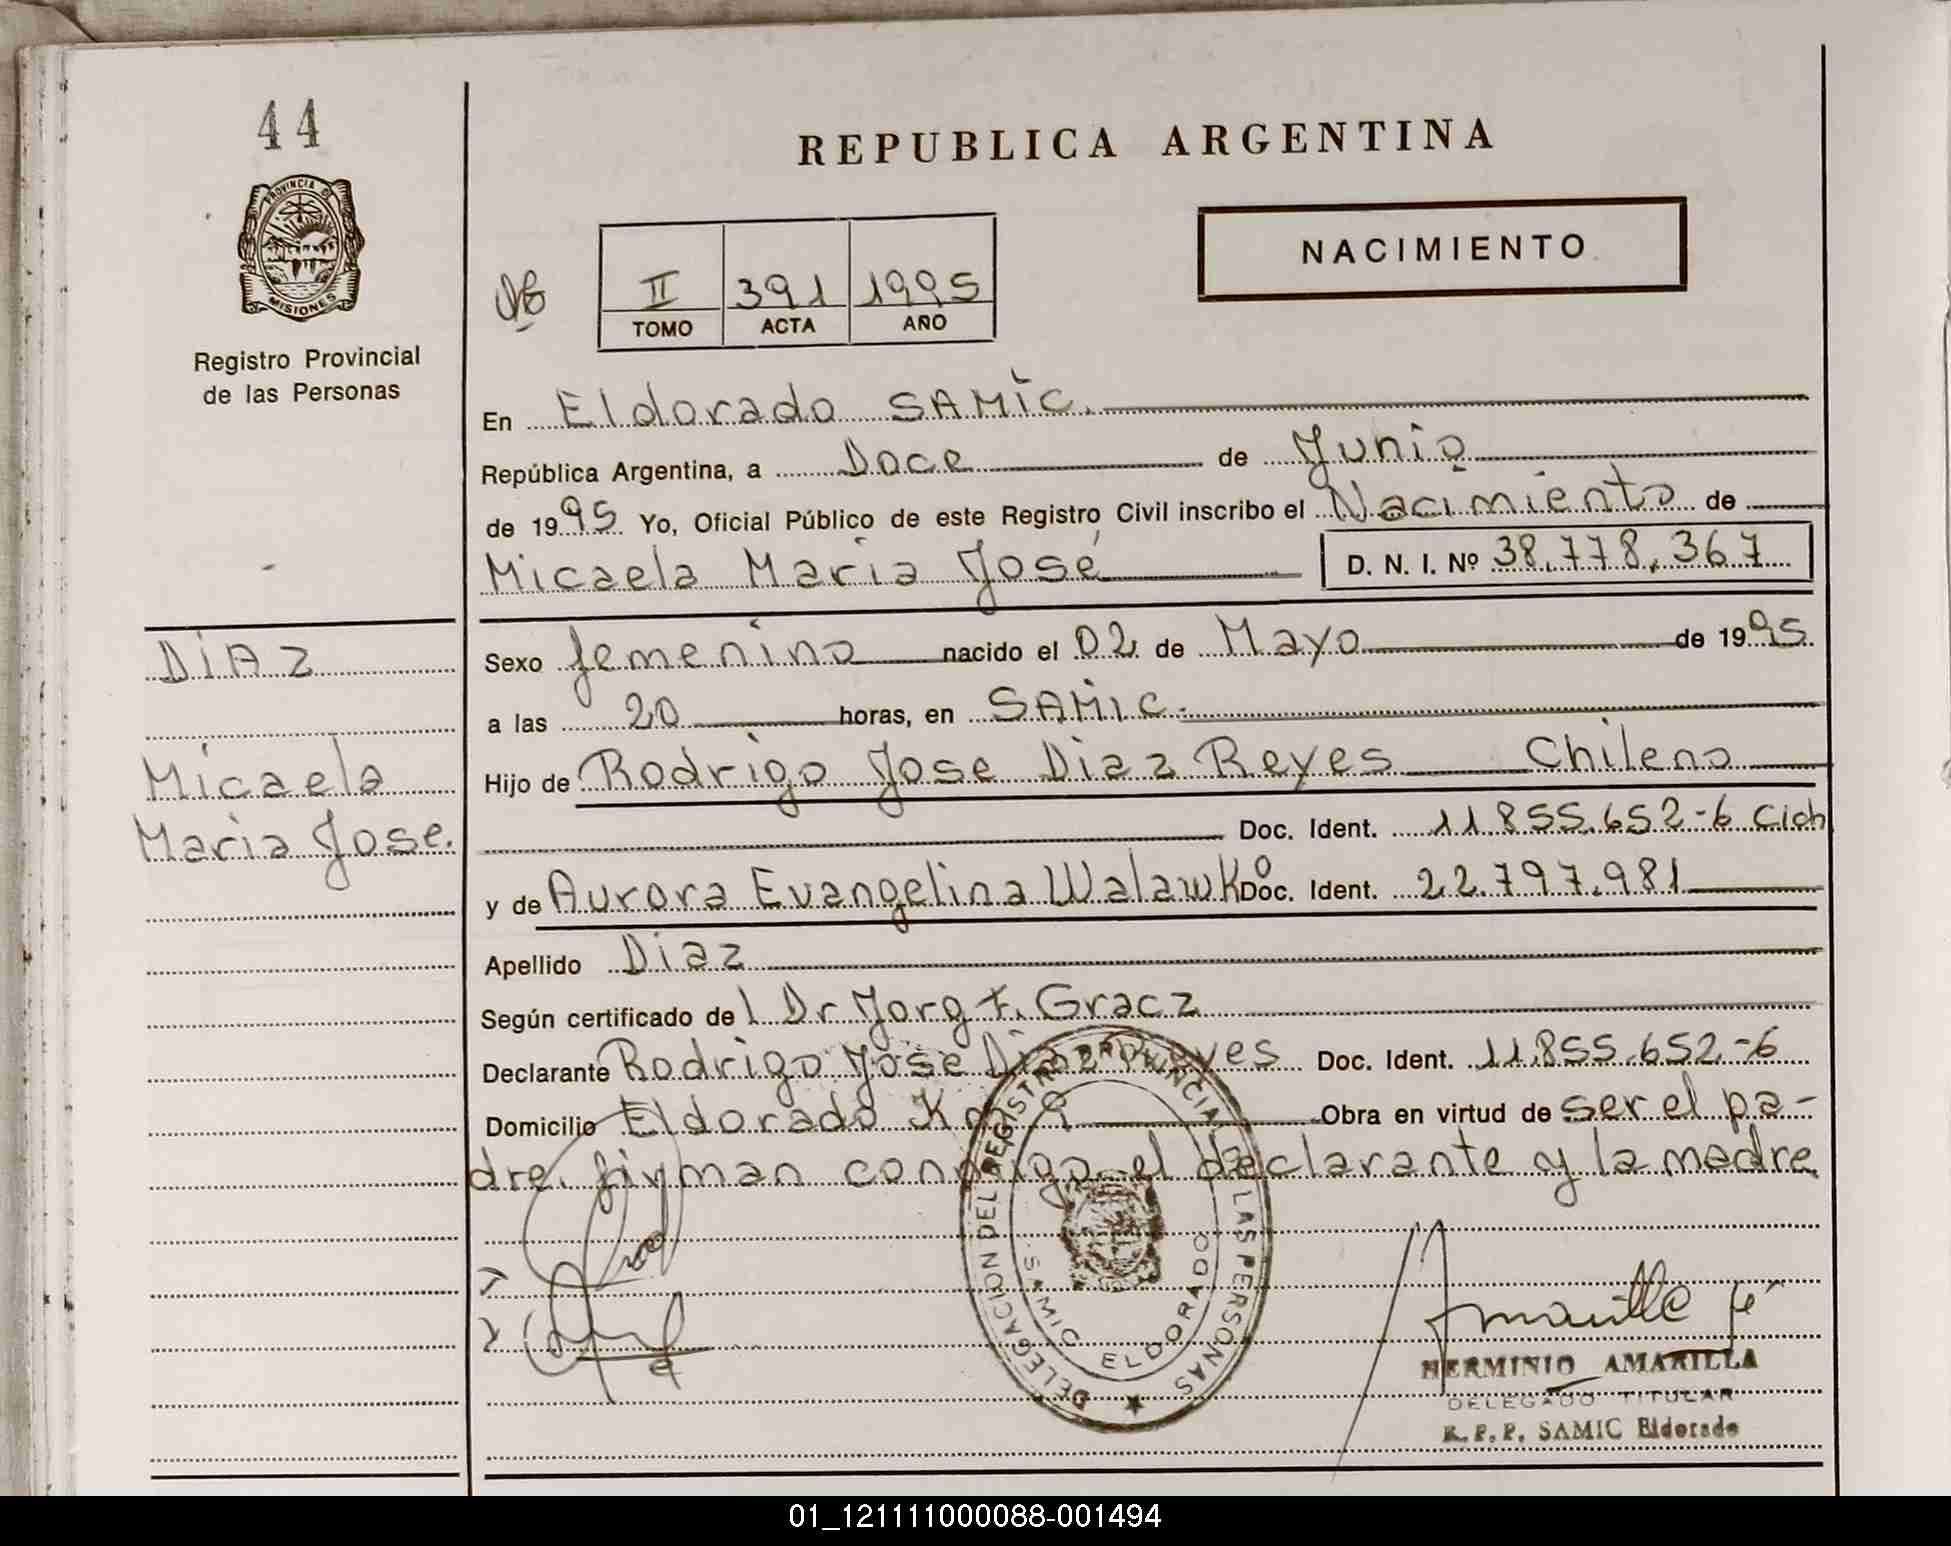 44
REPUBLICA ARGENTINA
PROVINCIA DE
MISIONES
Registro Provincial
de las Personas
II 391 1995
TOMO ACTA AÑO
NACIMIENTO
En Eldorado SAMIC.
República Argentina, a Doce de Junio
de 1995 Yo, Oficial Público de este Registro Civil inscribo el Nacimiento de
Micaela Maria José D. N. I. Nº 38.778.367
DIAZ
Sexo femenino nacido el 02 de Mayo de 1995.
a las 20 horas, en SAMIC.
Micaela
Maria Jose.
Hijo de Rodrigo Jose Diaz Reyes Chileno
Doc. Ident. 11.855.652-6 Cich
y de Aurora Evangelina Walawko Doc. Ident. 22.797.981
Apellido Diaz
Según certificado del Dr Jorg F. Gracz
Declarante Rodrigo Jose Diaz Reyes Doc. Ident. 11.855.652-6
Domicilio Eldorado Km 9 Obra en virtud de ser el pa-
dre. firman conmigo el declarante y la madre
DELEGACION DEL REGISTRO PROVINCIAL DE LAS PERSONAS
SAMIC ELDORADO
Amarilla
HERMINIO AMARILLA
DELEGADO TITULAR
R.P.P. SAMIC Eldorado
01_121111000088-001494